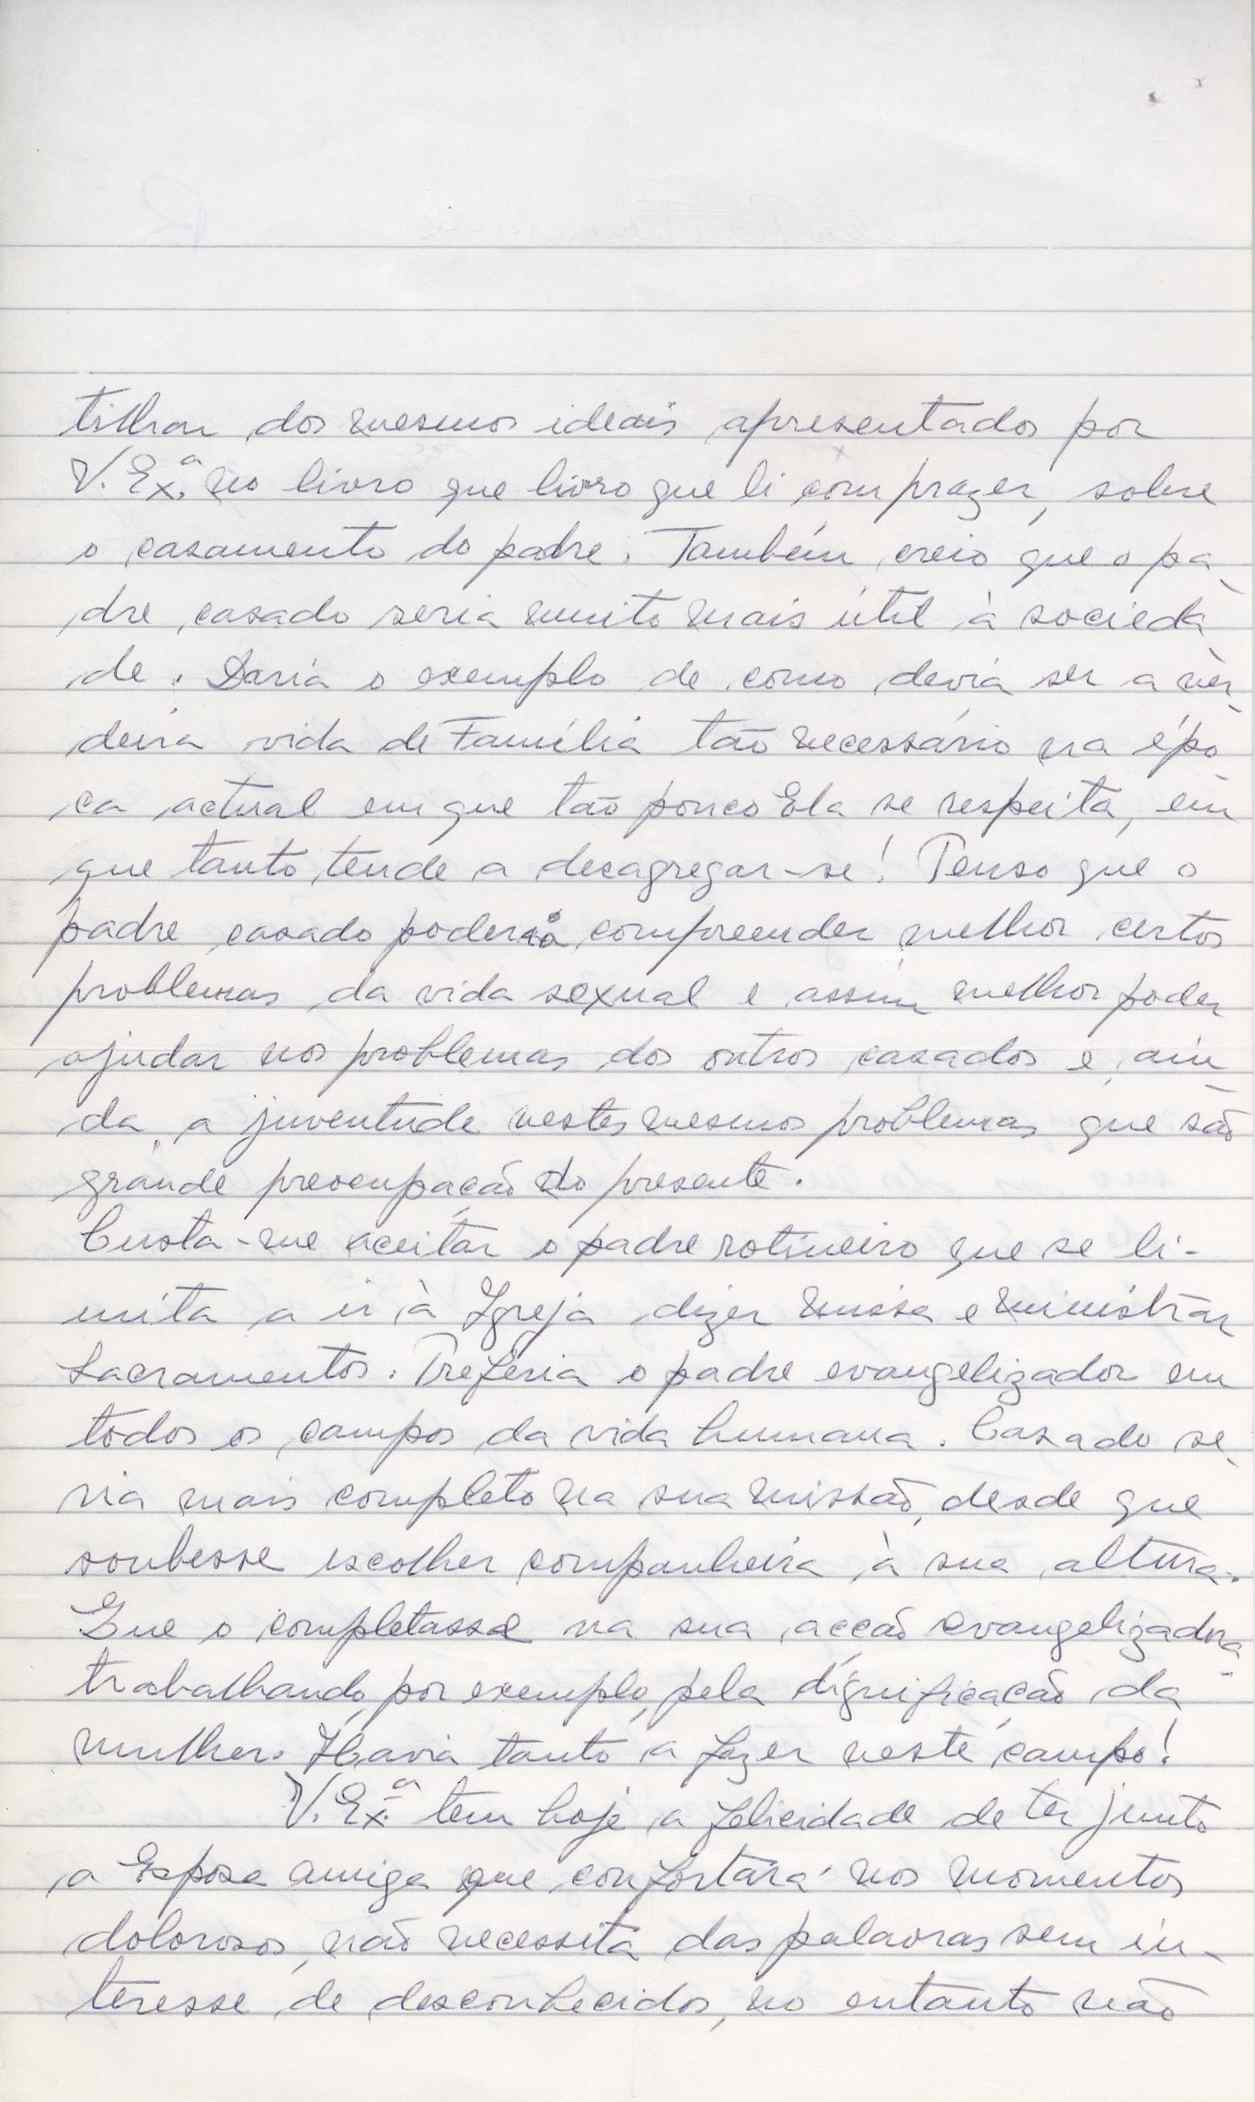 tilhar dos mesmos ideais apresentados por
V. Exª. no livro que livro que li com prazer, sobre
o casamento do padre. Também creio que o pa-
dre casado seria muito mais útil à socieda-
de. Daria o exemplo de como devia ser a ver-
deira vida de Família tão necessário na épo-
ca actual em que tão pouco Ela se respeita, em
que tanto tende a desagregar-se! Penso que o
padre casado poderia compreender melhor certos
problemas da vida sexual e assim melhor poder
ajudar nos problemas dos outros casados e, ain-
da, a juventude nestes mesmos problemas que são
grande preocupação do presente.
Custa-me aceitar o padre rotineiro que se li-
mita a ir à Igreja dizer missa e ministrar
Sacramentos. Preferia o padre evangelizador em
todos os campos da vida humana. Casado se-
ria mais completo na sua missão, desde que
soubesse escolher companheira à sua altura.
Que o completasse na sua acção evangelizadora
trabalhando, por exemplo, pela dignificação da
mulher. Havia tanto a fazer neste campo!
V. Exª. tem hoje a felicidade de ter junto
a Esposa amiga que confortará nos momentos
dolorosos, não necessita das palavras sem in-
teresse de desconhecidos, no entanto não